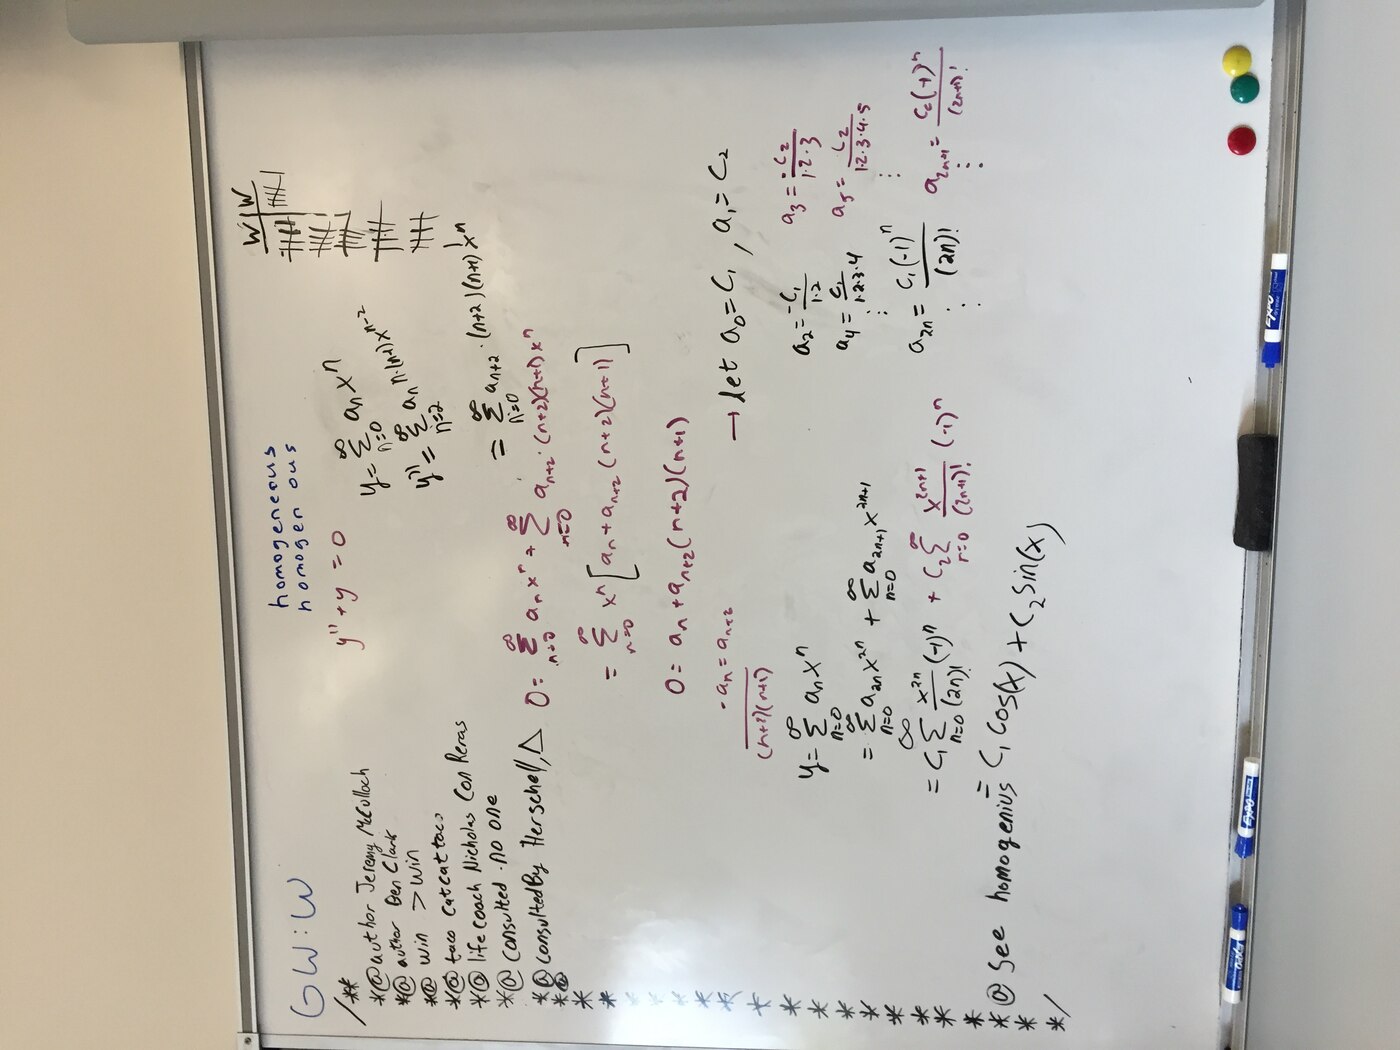 GW:W
homogeneous
homogenous
W W
/**
*@author Jeremy McCulloch
*@author Ben Clark
*@ win > win
*@ taco catcattaco
*@ life coach Nicholas Con Reras
*@ consulted no one
*@ consultedBy Herschel, Δ
*@
*
*
*
*
*
*
*
*
*
*
*
*
*
*
*@ See homogenius
*
*/
y'' + y = 0
y = ∑_{n=0}^∞ a_n x^n
y'' = ∑_{n=2}^∞ a_n n·(n-2) x^{n-2}
= ∑_{n=0}^∞ a_{n+2}·(n+2)(n+1) x^n
0 = ∑_{n=0}^∞ a_n x^n + ∑_{n=0}^∞ a_{n+2}·(n+2)(n+1) x^n
= ∑_{n=0}^∞ x^n [a_n + a_{n+2}(n+2)(n+1)]
0 = a_n + a_{n+2}(n+2)(n+1)
-a_n/((n+2)(n+1)) = a_{n+2}
→ let a_0 = C_1, a_1 = C_2
a_2 = -C_1/(1·2)
a_3 = -C_2/(1·2·3)
a_4 = C_1/(1·2·3·4)
a_5 = C_2/(1·2·3·4·5)
⋮ ⋮
a_{2n} = C_1(-1)^n/(2n)!
a_{2n+1} = C_2(-1)^n/(2n+1)!
⋮ ⋮
y = ∑_{n=0}^∞ a_n x^n
= ∑_{n=0}^∞ a_{2n} x^{2n} + ∑_{n=0}^∞ a_{2n+1} x^{2n+1}
= C_1 ∑_{n=0}^∞ x^{2n}/(2n)! (-1)^n + C_2 ∑_{n=0}^∞ x^{2n+1}/(2n+1)! (-1)^n
= C_1 cos(x) + C_2 sin(x)
EXPO
EXPO
EXPO